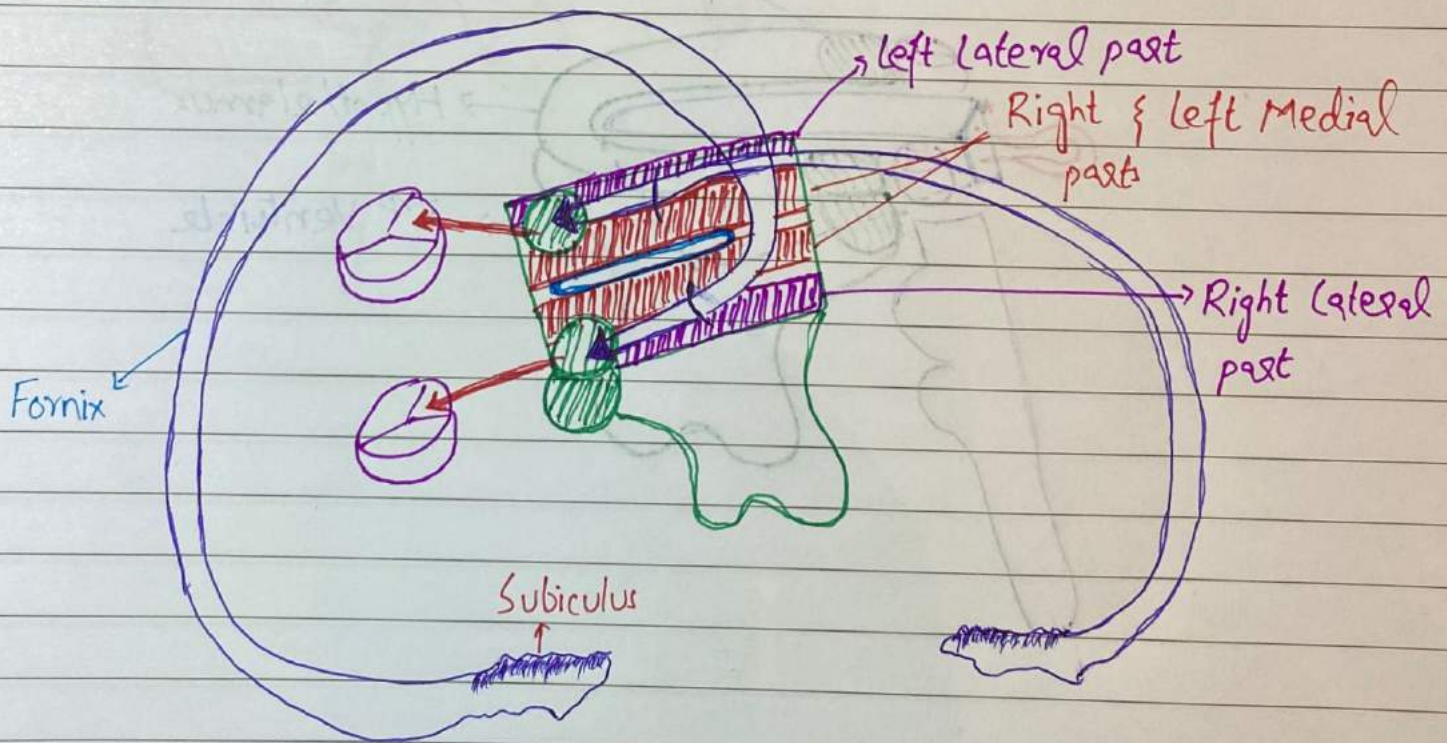 Left Lateral part
Right & Left Medial
parts
Right Lateral
part
Fornix
Subiculus